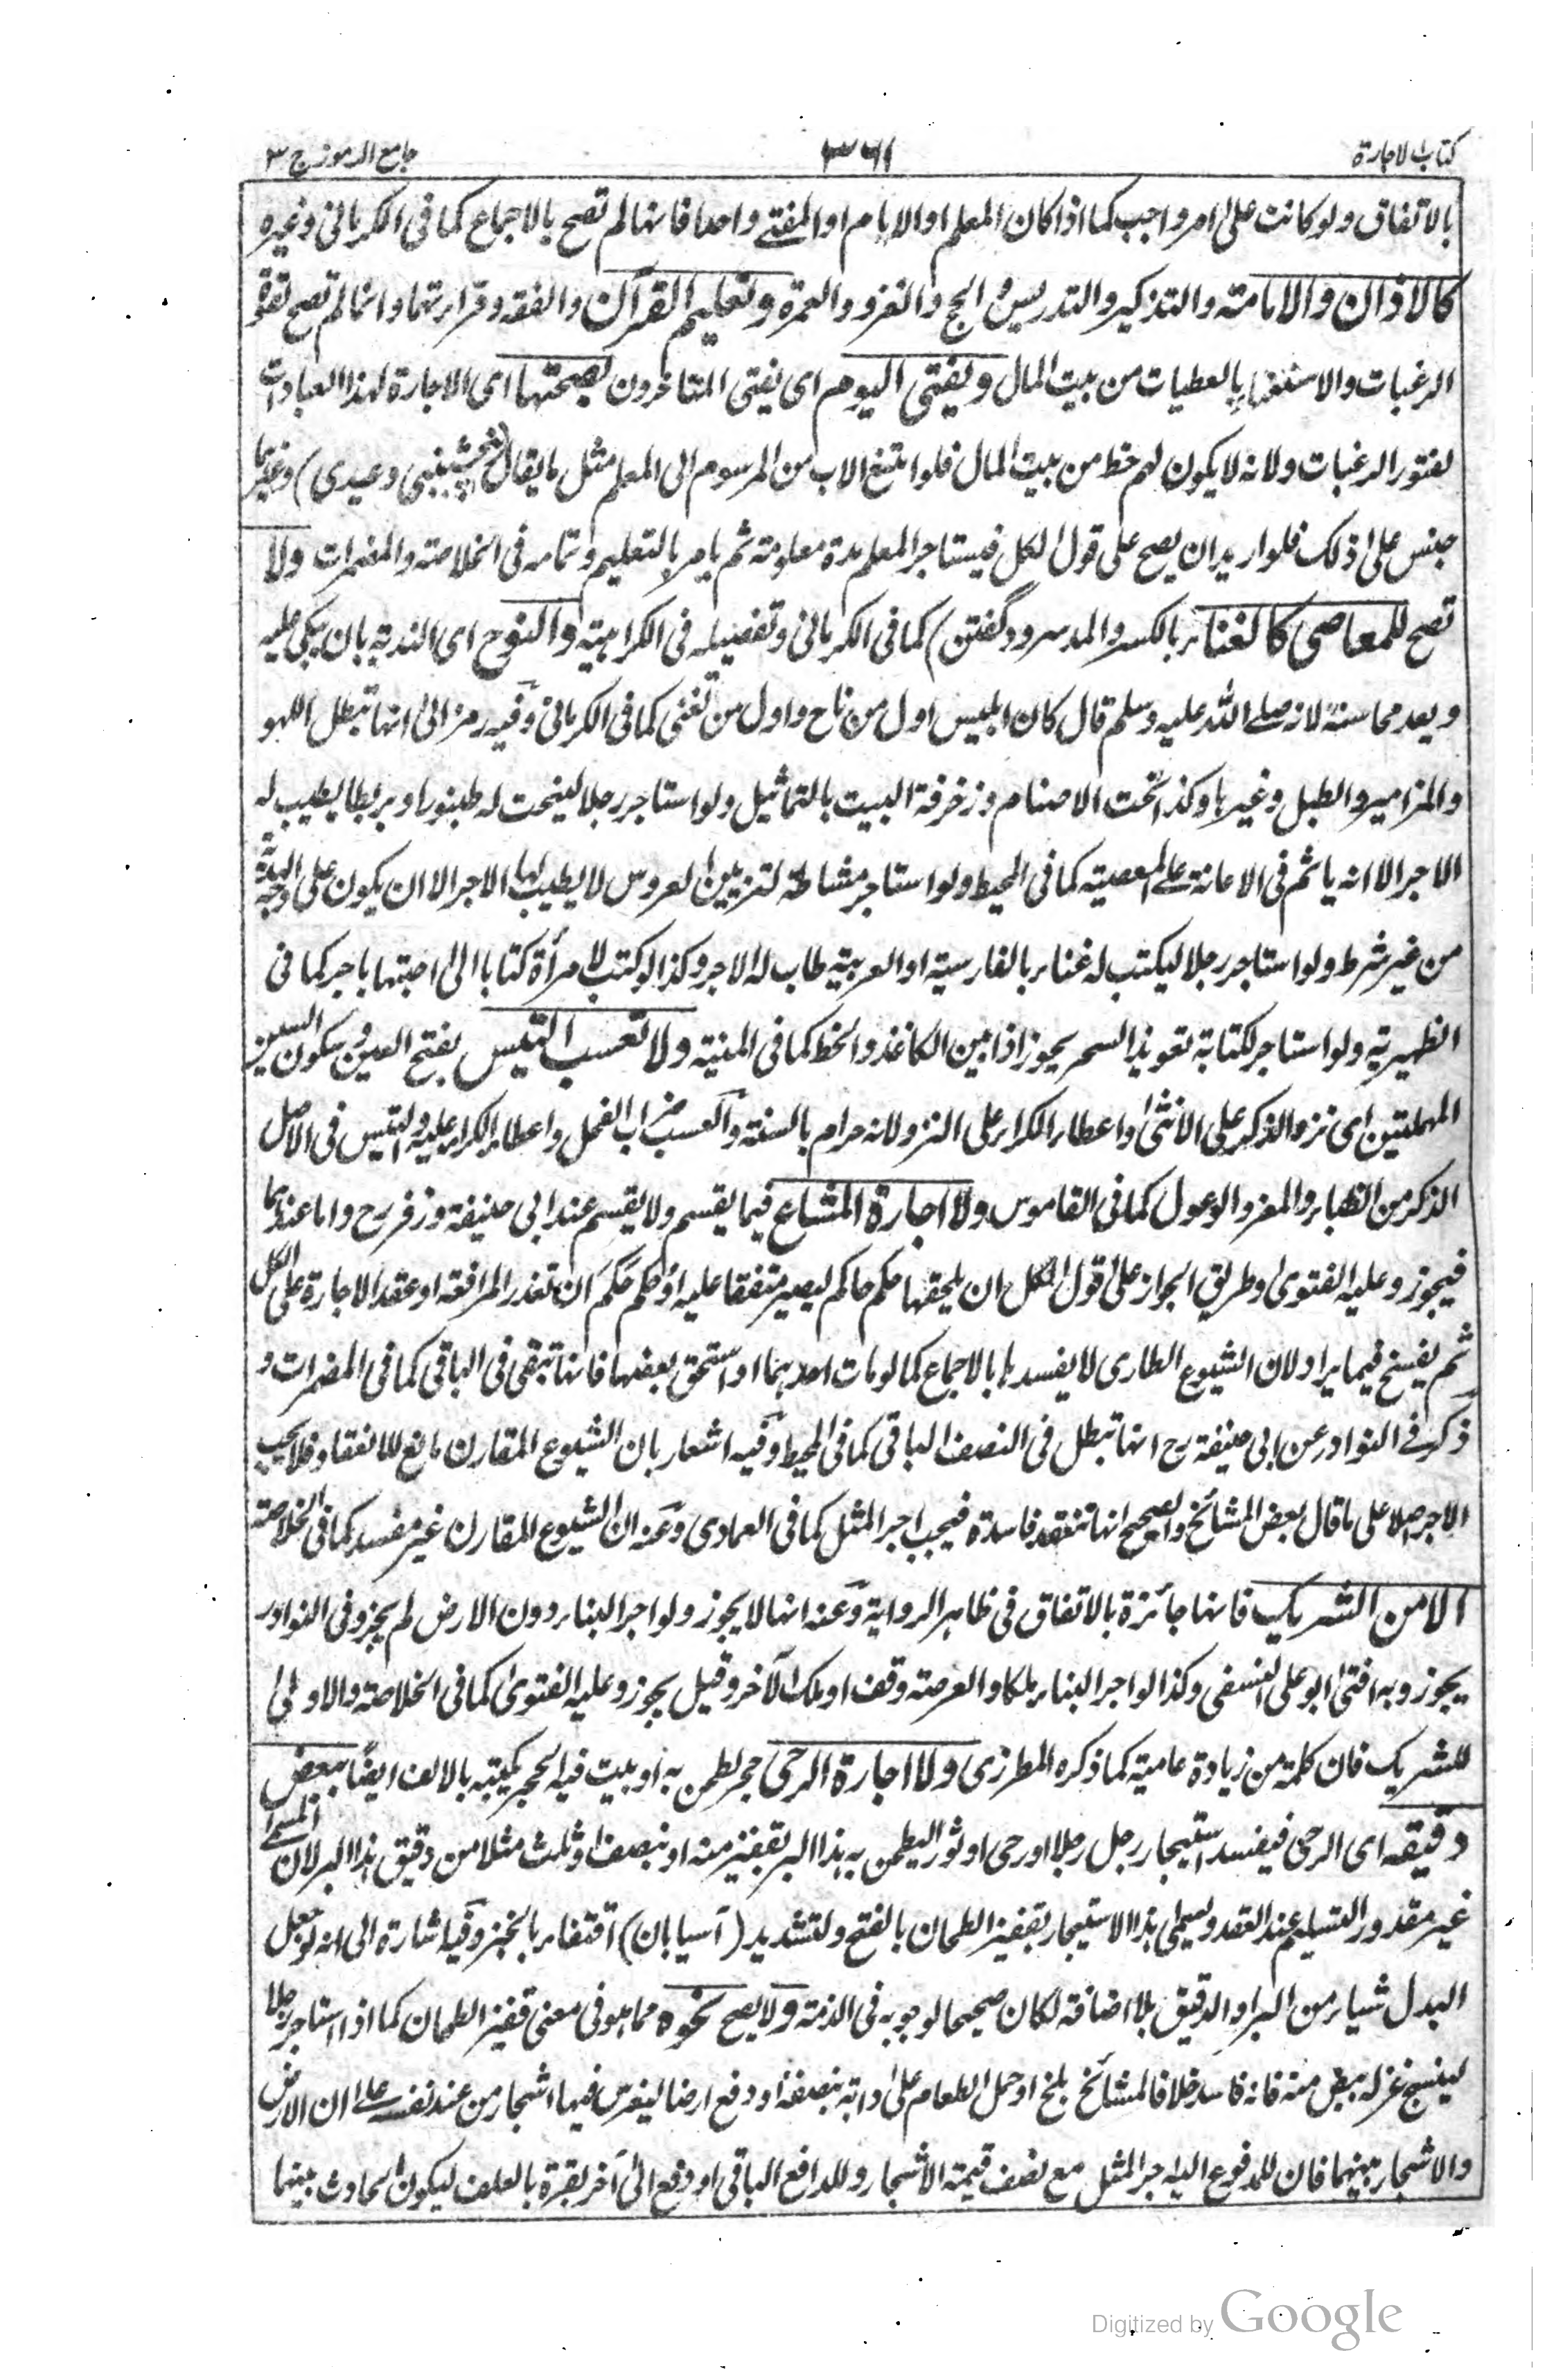 كتاب الاجارة
٣٦١
جامع الرموز ج ٣
بالاتفاق ولو كانت على امر واجب كما اذا كان المعلم او الامام او المفتى واحدا فانها لم تصح بالاجماع كما فى الكرمانى وغيره
كالاذان والامامة والتذكير والتدريس والحج والغزو والعمرة وتعليم القرآن والفقه وقراءتهما وانما لم تصح لقوة
الرغبات والاستغناء بالعطيات من بيت المال ويفتى اليوم اى يفتى المتاخرون بصحتها اى الاجارة لهذا العبادات
لفتور الرغبات ولانه لا يكون لهم حظ من بيت المال فلو امتنع الاب من المرسوم الى المعلم مثل ما يقال وعيدى) وغيرهما
حبس على ذلك فلو اريد ان يصح على قول الكل فيستاجر المعلم مدة معلومة ثم يامر بالتعليم وتمامه فى الخلاصة والمضمرات ولا
تصح للمعاصى كالغناء بالكسر والمد سرود گفتن) كما فى الكرمانى وتفصيله فى الكراهية والنوح اى الندبة بان يبكى عليه
ويعد محاسنه لانه صلى الله عليه وسلم قال كان ابليس اول من ناح واول من تغنى كما فى الكرمانى وفيه رمز الى انها تبطل اللهو
والمزامير والطبل وغيرها وكذا نحت الاصنام وزخرفة البيت بالتماثيل ولو استاجر رجلا لينحت له طنبورا او بربطا يطيب له
الاجر الا انه ياثم فى الاعانة على المعصية كما فى المحيط ولو استاجر مشاطة لتزيين العروس لا يطيب لها الاجر الا ان يكون على وجه الهدية
من غير شرط ولو استاجر رجلا ليكتب له غناء بالفارسية او العربية طاب له الاجر وكذا لو كتب لامرأة كتابا الى احبتها باجر كما فى
الظهيرية ولو استاجر لكتابة تعويذ السحر يجوز اذا بين الكاغذ والخط كما فى المنية ولا تعسب التيس بفتح العين وسكون السين
المهملتين اى نزو الذكر على الانثى واعطاء الكراء على النزو لانه حرام بالسنة والعسب ضراب الفحل واعطاء الكراء عليه والتيس فى الاصل
الذكر من الظباء والمعز والوعول كما فى القاموس ولا اجارة المشاع فيما يقسم ولا يقسم عند ابى حنيفة وزفر رح واما عندهما
فيجوز وعليه الفتوى وطريق الجواز على قول الكل ان يلحقها حكم حاكم ليصير متفقا عليه او حكم حكم ان تعذر المرافعة او عقد الاجارة على الكل
ثم يفسخ فيما يراد لان الشيوع الطارى لا يفسدها بالاجماع كما لو مات احدهما او استحق بعضها فانها تبقى فى الباقى كما فى المضمرات و
ذكر فى النوادر عن ابى حنيفة رح انها تبطل فى النصف الباقى كما فى المحيط وفيه اشعار بان الشيوع المقارن مانع للانعقاد فلا يجب
الاجر اصلا على ما قال بعض المشائخ والصحيح انها تنعقد فاسدة فيجب اجر المثل كما فى العمادى وعنه ان الشيوع المقارن غير مفسد كما فى الخلاصة
الا من الشريك فانها جائزة بالاتفاق فى ظاهر الرواية وعنه انها لا يجوز ولو اجر البناء دون الارض لم يجز وفى النوادر
يجوز وبه افتى ابو على النسفى وكذا لو اجر البناء ملكا والعرصة وقف او ملك لآخر وقيل يجوز وعليه الفتوى كما فى الخلاصة والاولى
للشريك فان كلمة من زيادة عامية كما ذكره المطرزى ولا اجارة الرحى حجر لطحن به او بيت فيه الحجر يكتبه بالالف ايضا ببعض
دقيقه اى الرحى فيفسد استيجار رجل رجلا او رحى او ثور اليطحن به هذا البر بقفيز منه او بنصف او ثلث مثلا من دقيق هذا البر لان المسمى
غير مقدور التسليم عند العقد ويسمى هذا الاستيجار بقفيز الطحان بالفتح والتشديد (آسيابان) اقتفاء بالخبر وفيه اشارة الى انه لو جعل
البدل شياء من البر او الدقيق بلا اضافة لكان صحيحا لوجوبه فى الذمة ولا يصح نحوه مما هو فى معنى قفيز الطحان كما اذا استاجر رجلا
لينسج غزله ببعض منه فانه فاسد خلافا لمشائخ بلخ او حمل الطعام على دابته بنصفه او دفع ارضا ليغرس فيها اشجار من عند نفسه على ان الارض
والاشجار بينهما فان للمدفوع اليه اجر المثل مع نصف قيمة الاشجار وللدافع الباقى او دفع الى آخر بقرة بالعلف ليكون الحادث بينهما
Digitized by Google